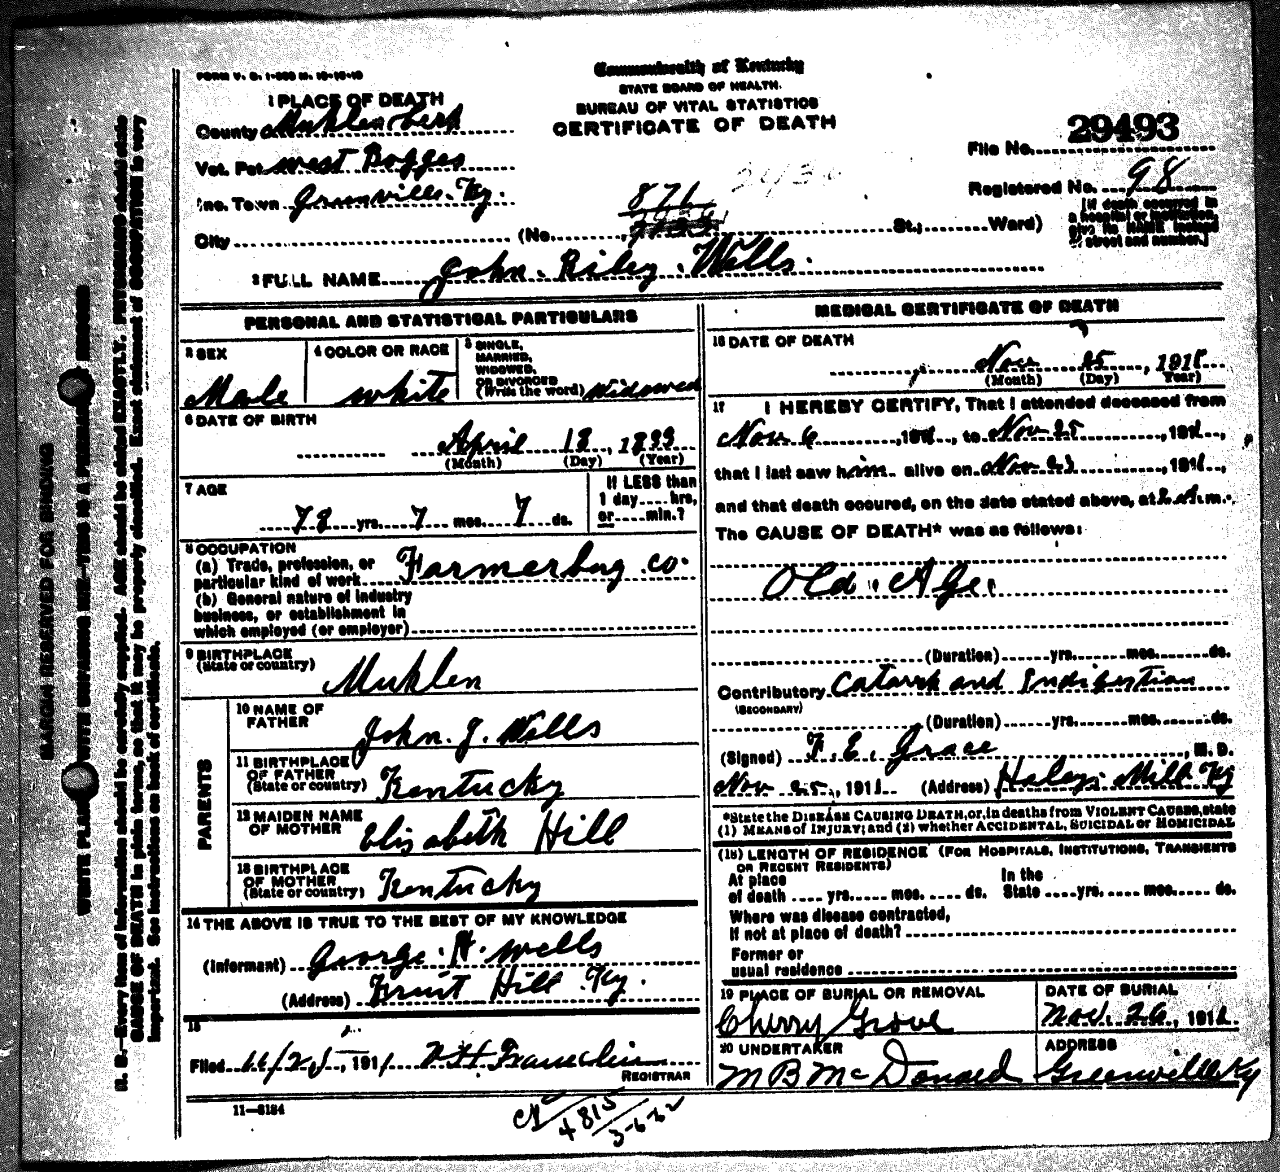 FORM V. S. 1-
Commonwealth of Kentucky
STATE BOARD OF HEALTH.
BUREAU OF VITAL STATISTICS
CERTIFICATE OF DEATH
1 PLACE OF DEATH
County Muhlenberk
Vot. Pct west Bogges
Inc. Town Grunville. Ky.
City (No. St.; Ward)
871
File No. 29493
Registered No. 98
[If death occurred in
a hospital or institution,
give its NAME instead
of street and number.]
2 FULL NAME John. Riley. Wells.
PERSONAL AND STATISTICAL PARTICULARS
3 SEX
Male
4 COLOR OR RACE
white
5 SINGLE,
MARRIED,
WIDOWED,
OR DIVORCED
(Write the word) Widowed
6 DATE OF BIRTH
April 18, 1833
(Month) (Day) (Year)
7 AGE
78 yrs. 7 mos. 7 ds.
If LESS than
1 day hrs,
or min.?
8 OCCUPATION
(a) Trade, profession, or
particular kind of work Farmer
(b) General nature of industry
business, or establishment in
which employed (or employer)
9 BIRTHPLACE
(State or country)
Muhlen
PARENTS
10 NAME OF
FATHER
John. J. Wells
11 BIRTHPLACE
OF FATHER
(State or country) Kentucky
12 MAIDEN NAME
OF MOTHER Elisabeth Hill
13 BIRTHPLACE
OF MOTHER
(State or country) Kentucky
14 THE ABOVE IS TRUE TO THE BEST OF MY KNOWLEDGE
(Informant) George. H. Wells
(Address) Fruit Hill Ky.
15
Filed 11/25, 1911
REGISTRAR
11—5184
4815
3-6-62
MEDICAL CERTIFICATE OF DEATH
16 DATE OF DEATH
Nov 25, 1911
(Month) (Day) Year)
17 I HEREBY CERTIFY, That I attended deceased from
Nov 6, 1911, to Nov 25, 1911,
that I last saw him alive on Nov 23, 1911,
and that death occured, on the date stated above, at 2 A.m.
The CAUSE OF DEATH* was as follows:
Old Age
(Duration) yrs. mos. ds.
Contributory Catarrh and Indigestion
(SECONDARY)
(Duration) yrs. mos. ds.
(Signed) F. E. Grace, M. D.
Nov 25, 1911 (Address) Haleys Mill Ky
*State the DISEASE CAUSING DEATH, or, in deaths from VIOLENT CAUSES, state
(1) MEANS of INJURY; and (2) whether ACCIDENTAL, SUICIDAL or HOMICIDAL
(18) LENGTH OF RESIDENCE (FOR HOSPITALS, INSTITUTIONS, TRANSIENTS
OR RECENT RESIDENTS)
At place
of death yrs. mos. ds.
In the
State yrs. mos. ds.
Where was disease contracted,
if not at place of death?
Former or
usual residence
19 PLACE OF BURIAL OR REMOVAL
Cherry Grove
DATE OF BURIAL
Nov. 26, 1911.
20 UNDERTAKER
M B McDonald
ADDRESS
Greenville Ky
MARGIN RESERVED FOR BINDING
N. B.—Every item of information should be carefully supplied. AGE should be stated EXACTLY. PHYSICIANS should state
CAUSE OF DEATH in plain terms, so that it may be properly classified. Exact statement of OCCUPATION is very
important. See instructions on back of certificate.